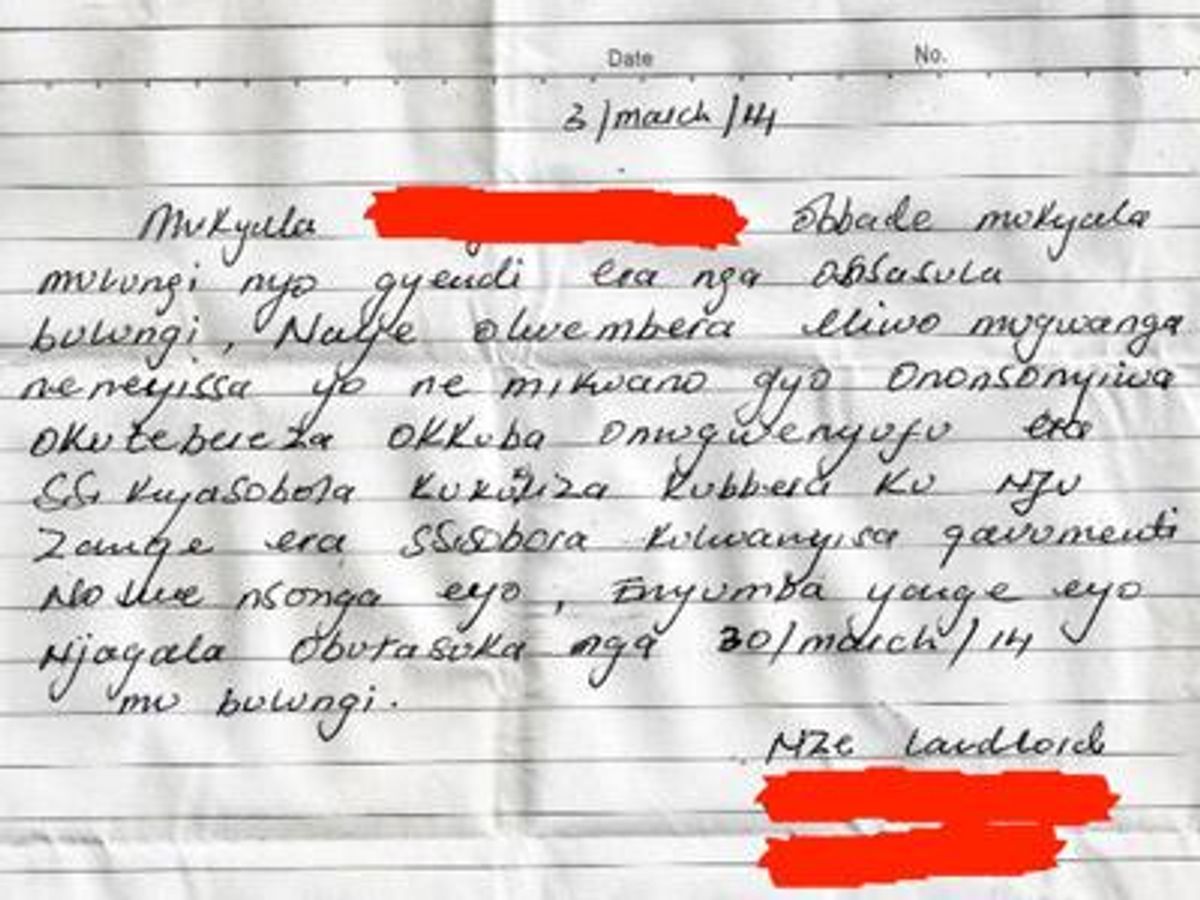 Date No.
3/march/14
Mukyala obbade mukyala
mulungi nyo gyendi era nga obsasula
bulungi, Naye olwembera Eliwo mugwanga
neneyissa yo ne mikwano gyo Ononsonyiwa
okutebereza okkuba omugwenyufu era
SSi kyasobola kukukiza kubbera ku Nju
Zange era SSisobora kulwanyisa gavumenti
No lwe nsonga eyo, Enyumba yange eyo
Njagala Oburasuka nga 30/march/14
mu bulungi.
Nze landlord